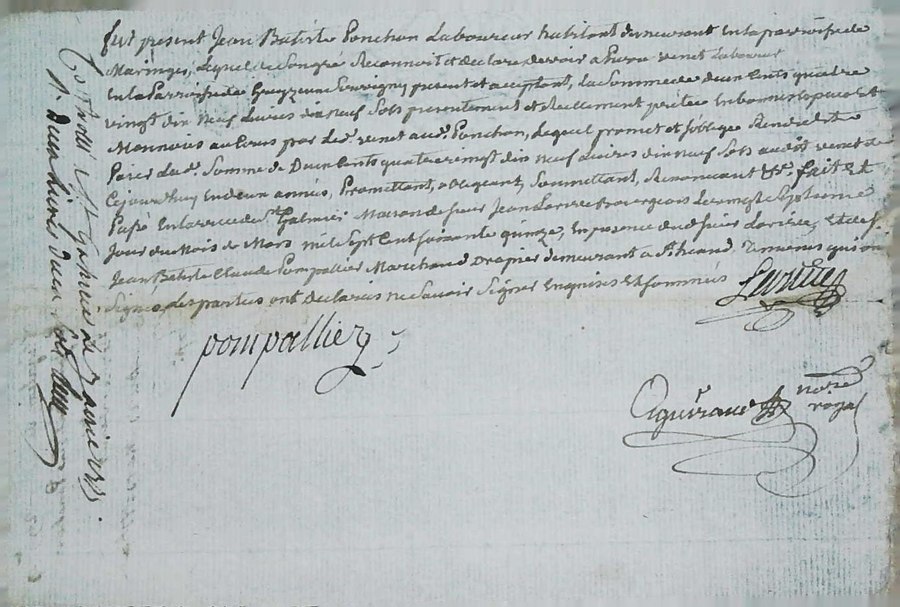 fut present Jean Batiste Ponchon Laboureur habitant demeurant en la parroisse de
Maringes, Lequel de Son gré Reconnoit et declare devoir a Pierre venet Laboureur
En la Parroisse de Souvigny present et aceptant, La Somme de deux Cents quatre
vingt dix neuf Livres dix neuf Sols presentement et Réellement prêtée En bonnes Especes et
Monnoies au Cours par Led. venet aud. Ponchon, Lequel promet et s'oblige Rendre et
Païer lad. Somme de Deux Cents quatre vingt dix neuf Livres dix neuf Sols aud. venet de
Cejourdhuy En deux années, Promettant, obligeant, Soumettant, Renoncant &c. fait Et
Passé En la ville de St Galmier Maison de sieur Jean Bourgeois
Jour du Mois de Mars mil Sept Cent soixante quinze, En presence dudit sieur et de sr
Jean Batiste Claude Pompallier Marchand Drapier demeurant a St Temoins qui ont
Signé, Les parties ont declarées ne Savoir Signer Enquises Et Sommées
pompallier
notre
royal
St Galmier Le